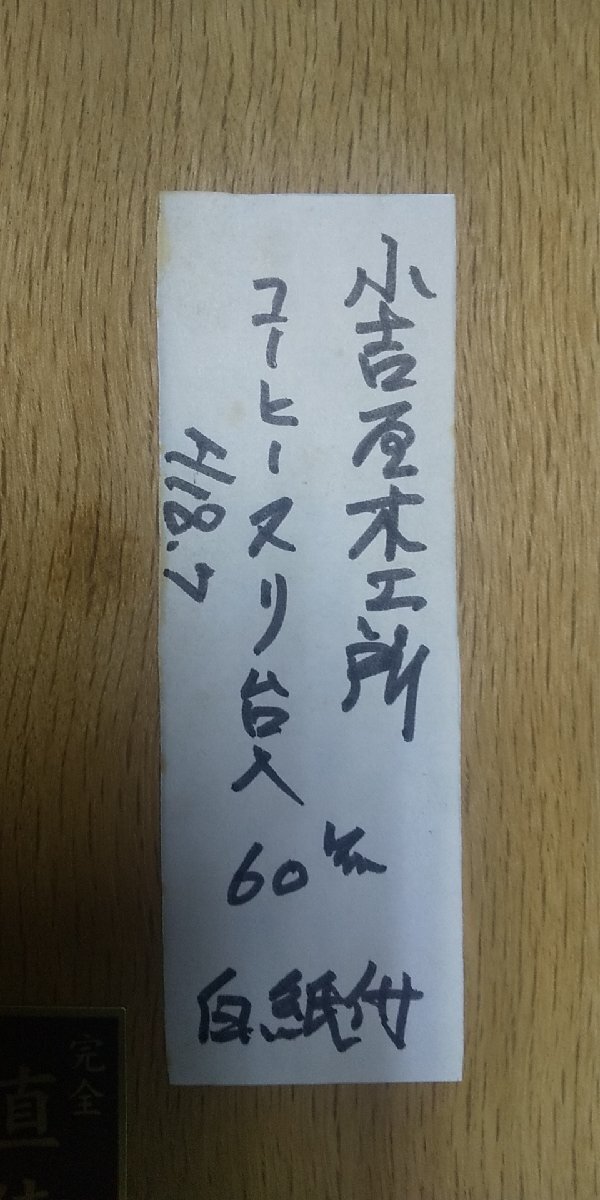 小吉屋木工所
コーヒースリ台入
H18.7
60㎜
白紙付
完全
直